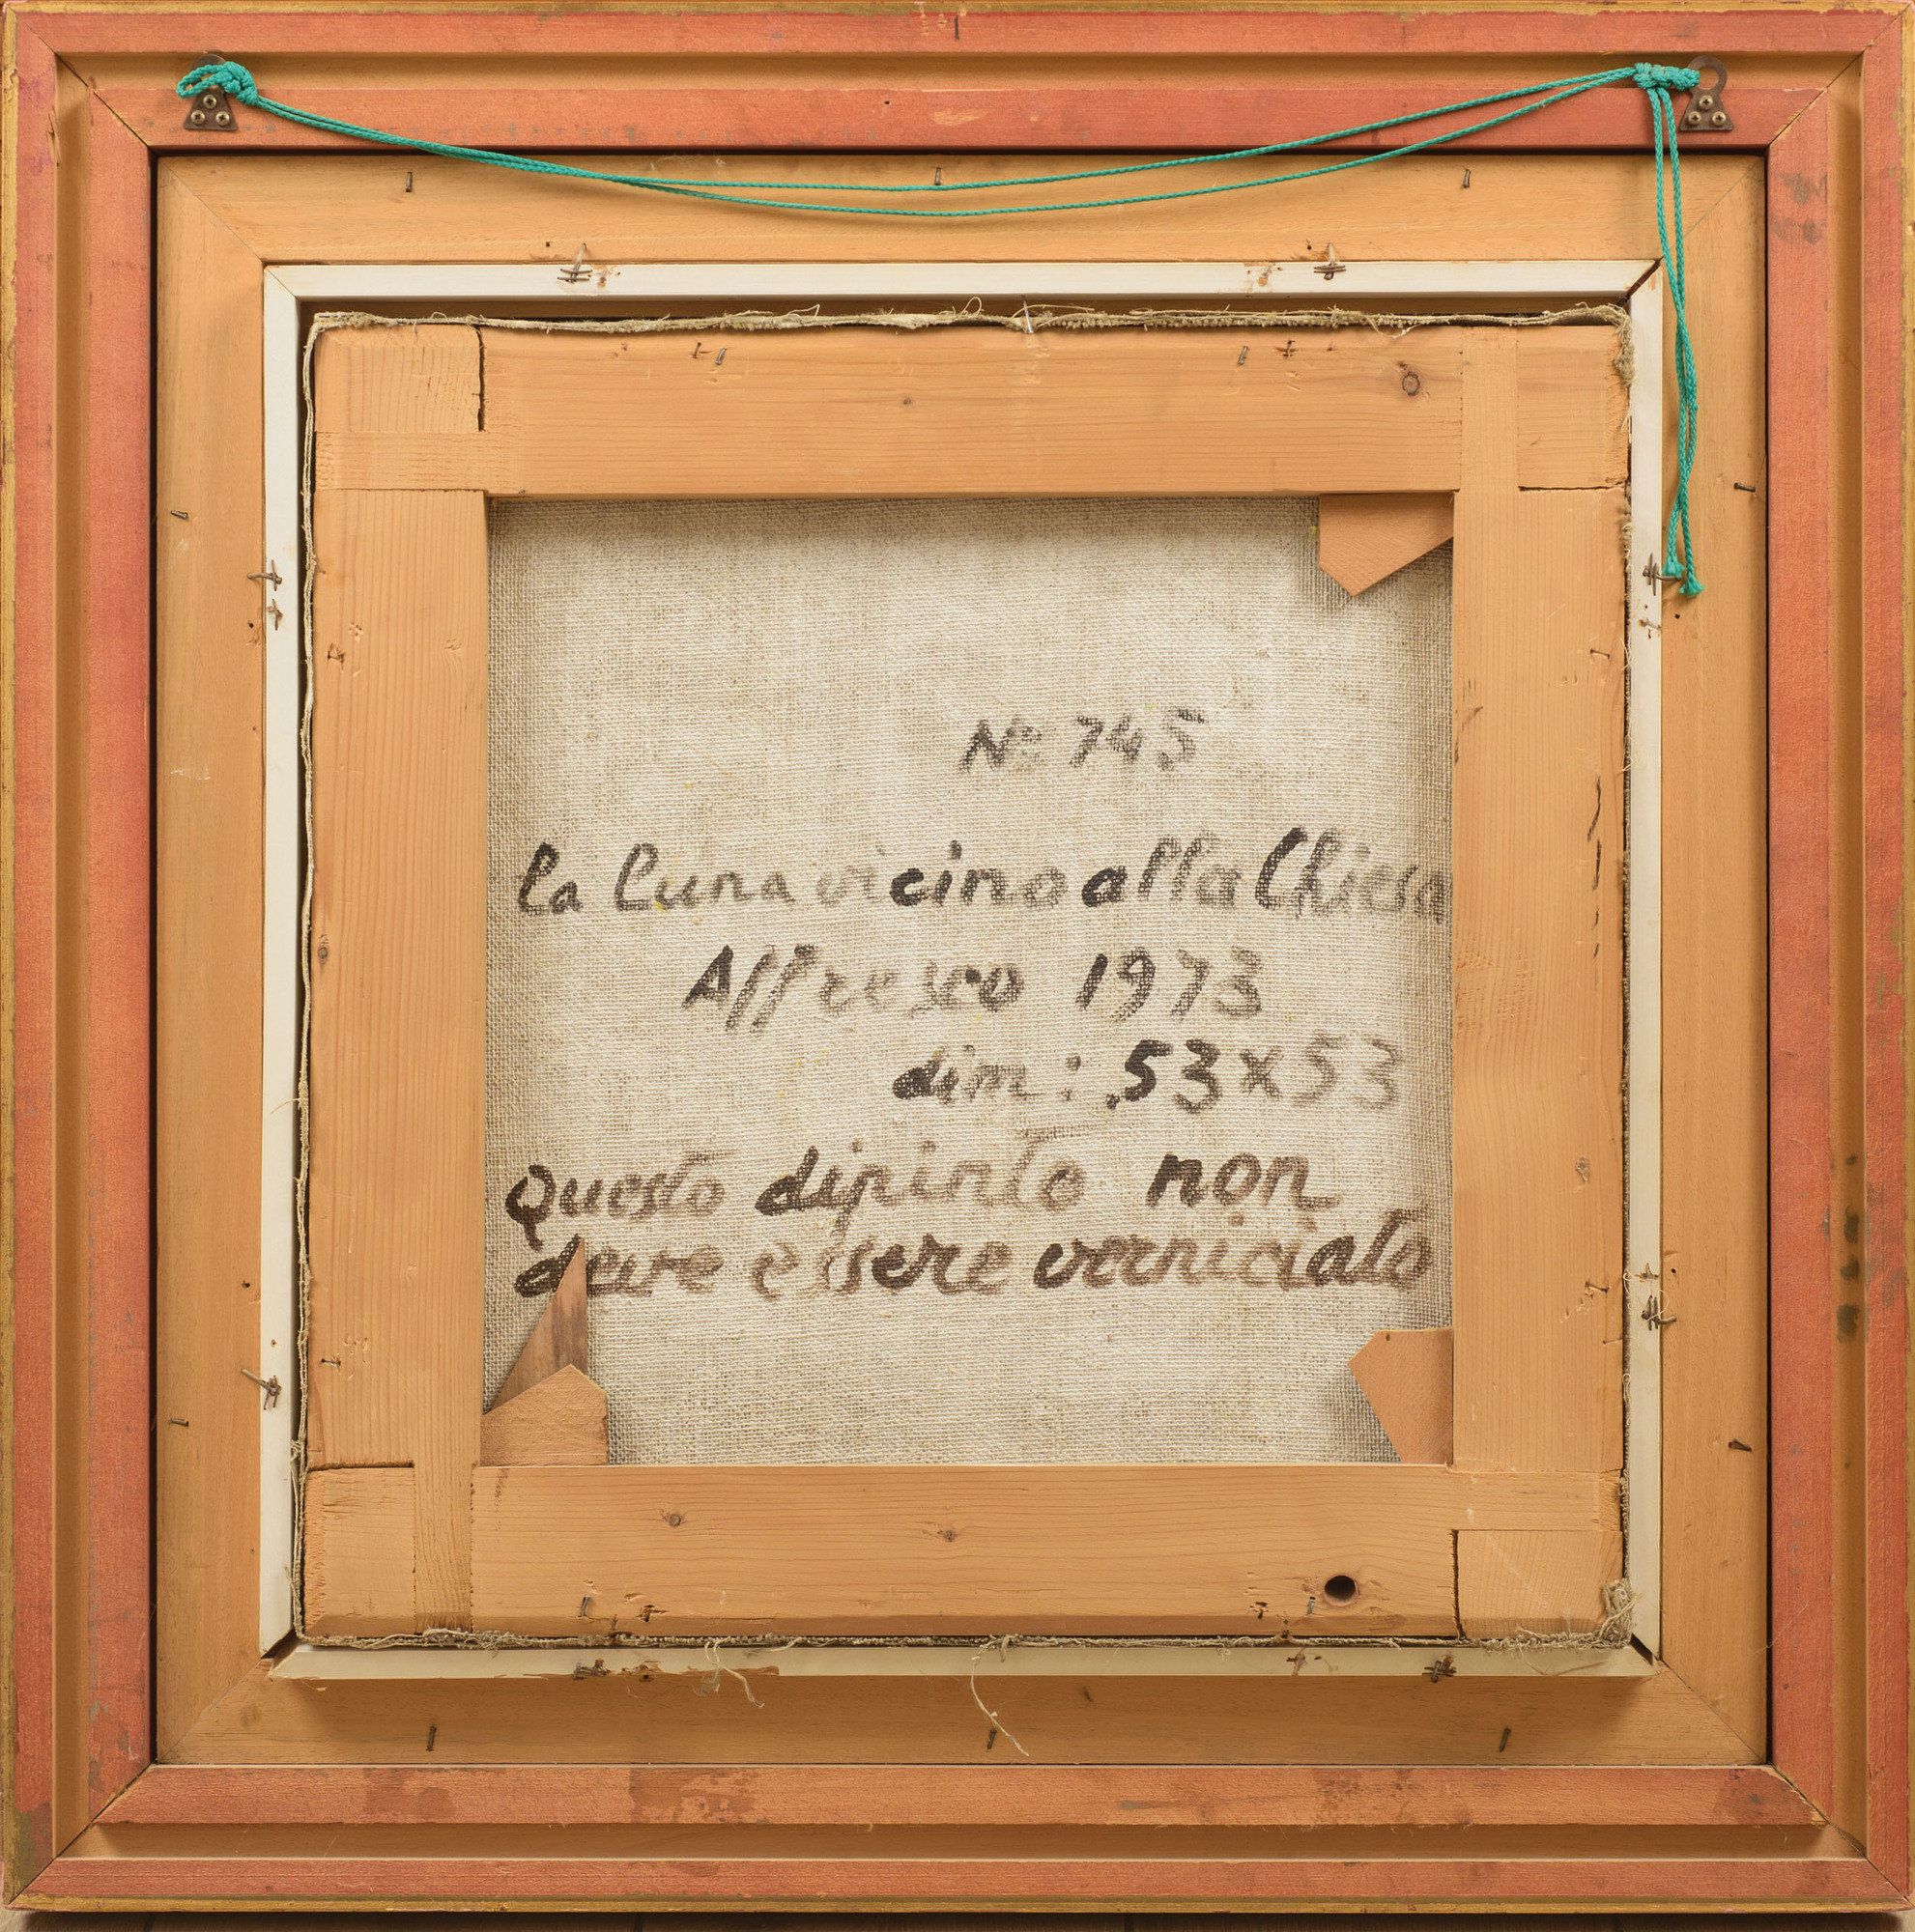 Nº 745
la luna vicino alla Chiesa
Affresco 1973
dim: 53x53
Questo dipinto non
deve essere verniciato